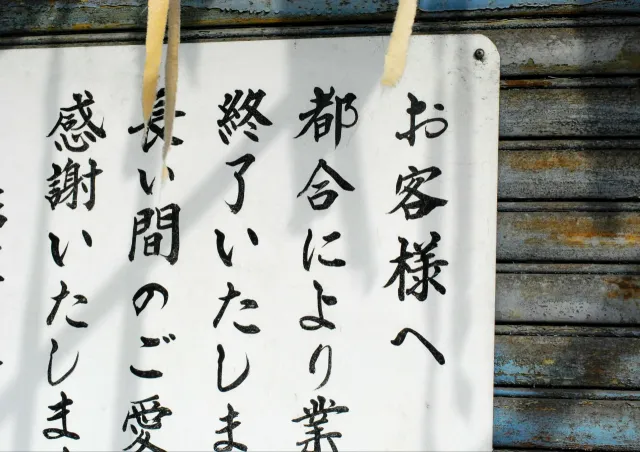 お客様へ
都合により業
終了いたしま
長い間のご愛
感謝いたしま